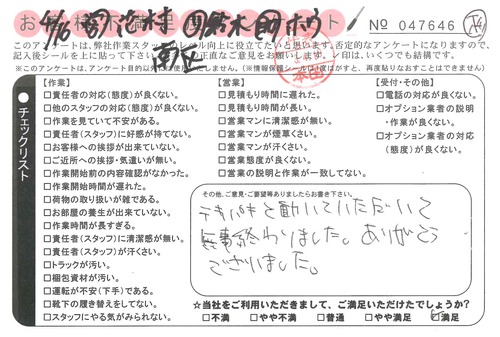 No 047646
このアンケートは、弊社作業スタッフのレベル向上に役立てたいと思います。否定的なアンケートになりますので、
※このアンケートは、アンケート目的以外
【作業】
□責任者の対応(態度)が良くない。
□他のスタッフの対応(態度)が良くない。
□作業を見ていて不安がある。
□責任者(スタッフ)に好感が持てない。
□お客様への挨拶が出来ていない。
□ご近所への挨拶・気遣いが無い。
□作業開始前の内容確認がなかった。
□作業開始時間が遅れた。
□荷物の取り扱いが雑である。
□お部屋の養生が出来ていない。
□作業時間が長すぎる。
□責任者(スタッフ)に清潔感が無い。
□責任者(スタッフ)が汗くさい。
□トラックが汚い。
□梱包資材が汚い。
□運転が不安(下手)である。
□靴下の履き替えをしてない。
□スタッフにやる気がみられない。
【営業】
□見積もり時間に遅れた。
□見積もり時間が長い。
□営業マンに清潔感が無い。
□営業マンが煙草くさい。
□営業マンが汗くさい。
□営業態度が良くない。
□営業の説明と作業が一致してない。
【受付・その他】
□電話の対応が良くない。
□オプション業者の説明
・作業が良くない。
□オプション業者の対応
(態度)が良くない。
●チェックリスト
その他、ご意見・ご要望等ありましたらお書き下さい。
テキパキと動いていただいて
無事終わりました。ありがとう
ございました。
☆当社をご利用いただきまして、ご満足いただけたでしょうか?
□不満 □やや不満 □普通 □やや満足 □満足